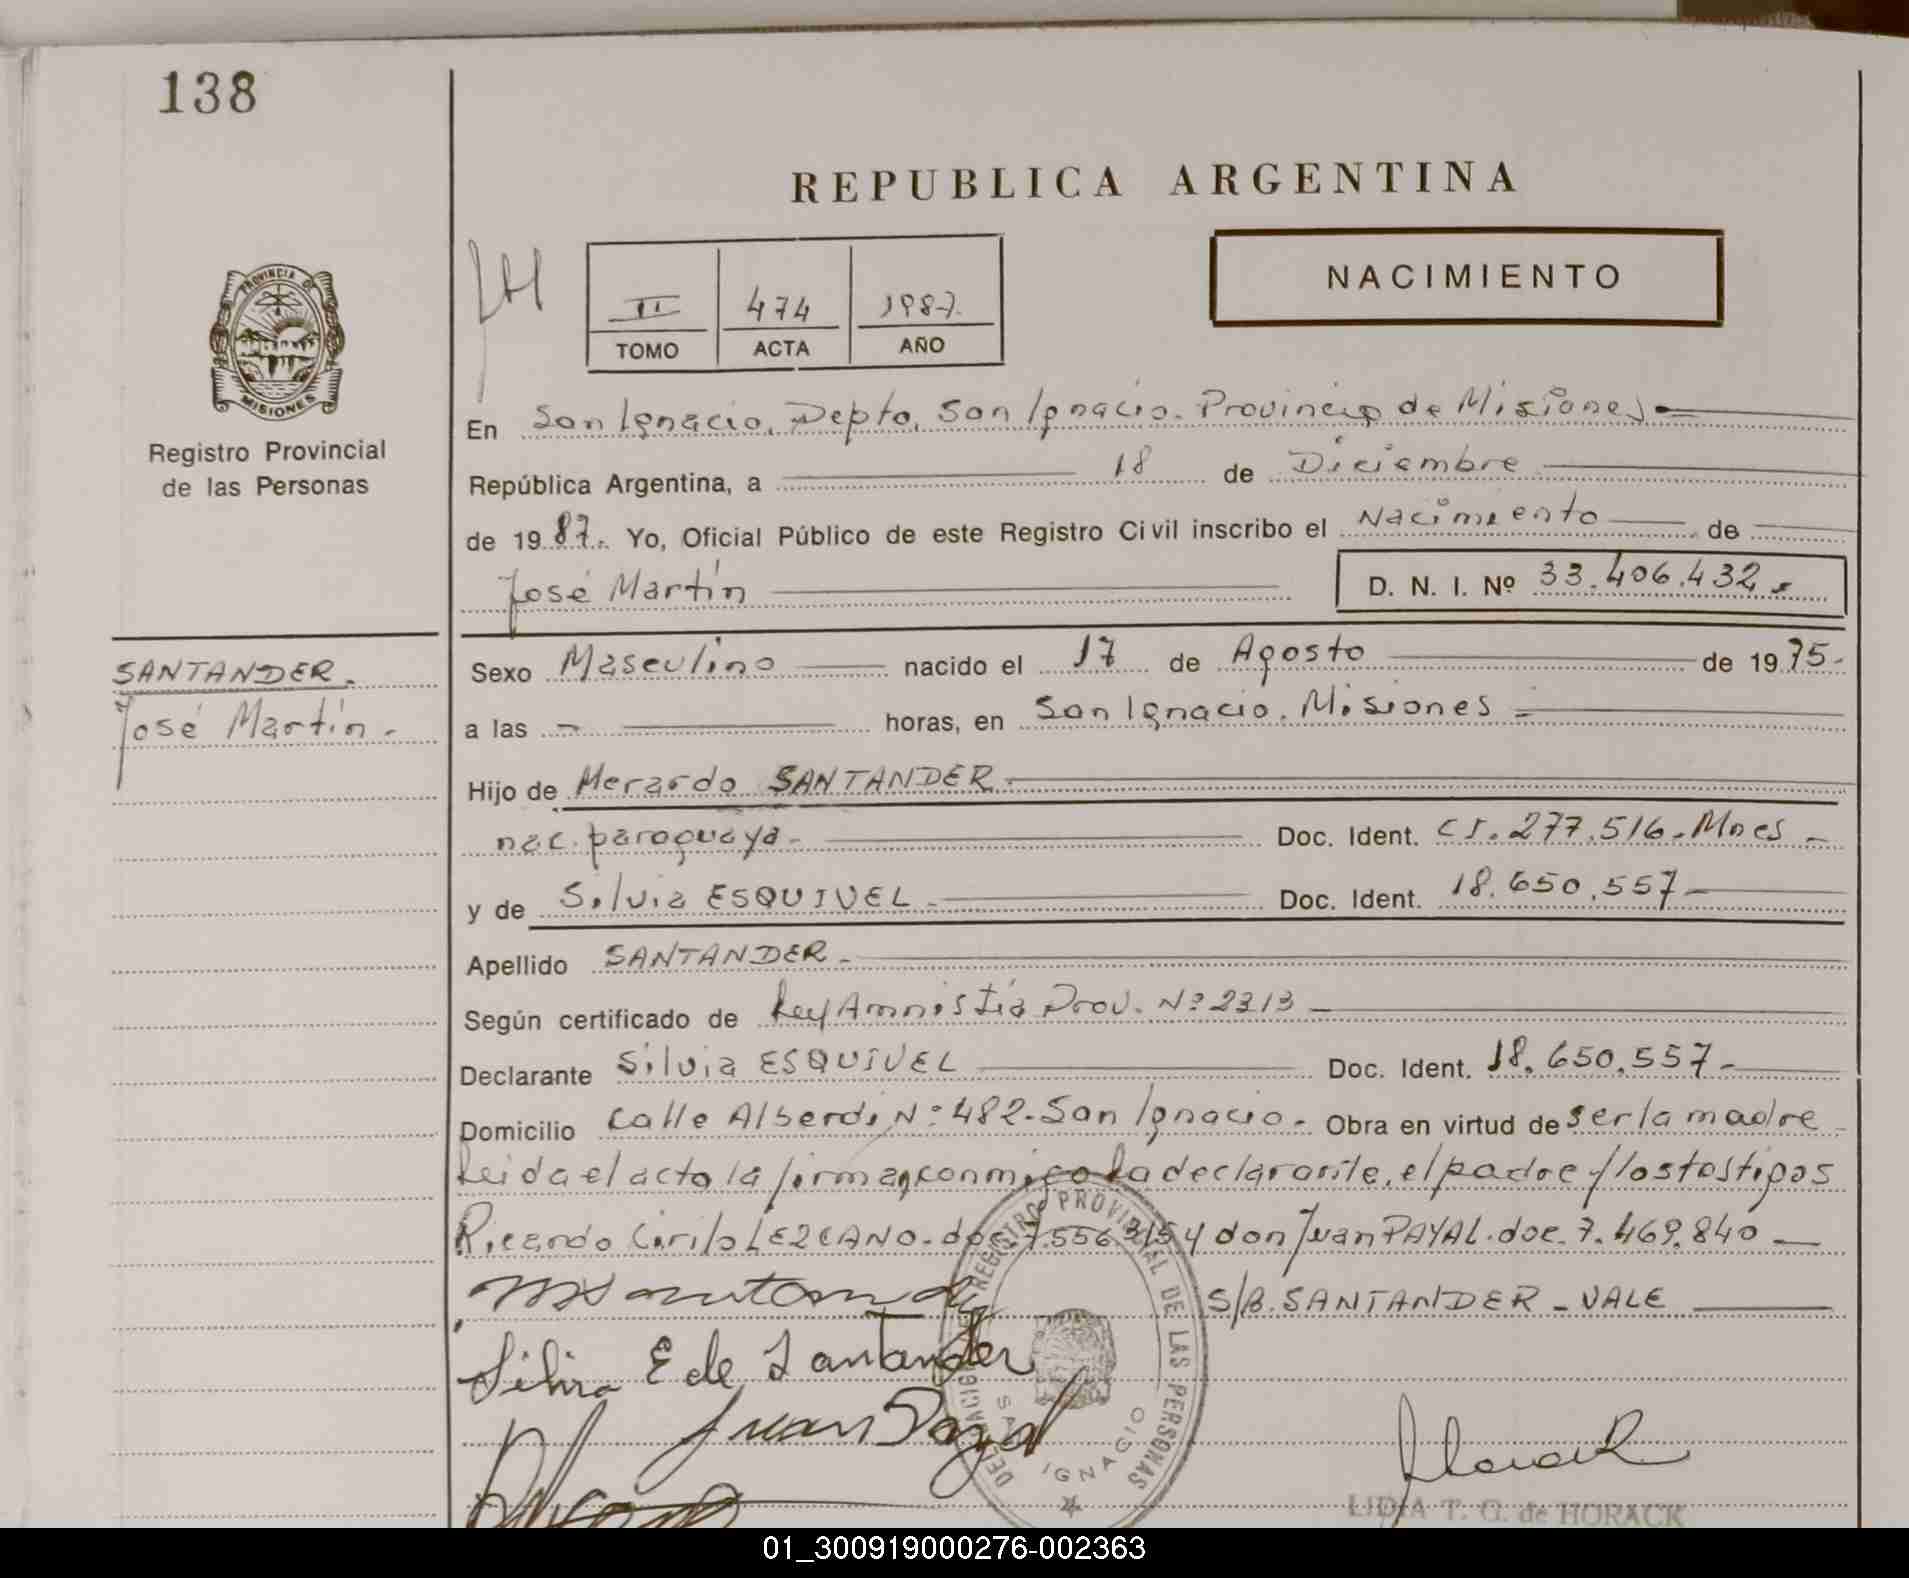 138
REPUBLICA ARGENTINA
NACIMIENTO
II 474 1987.
TOMO ACTA AÑO
PROVINCIA DE
MISIONES
Registro Provincial
de las Personas
En San Ignacio, Depto, San Ignacio. Provincia de Misiones.
República Argentina, a 18 de Diciembre
de 1987. Yo, Oficial Público de este Registro Civil inscribo el Nacimiento de
José Martín
D. N. I. Nº 33.406.432.
SANTANDER.
José Martín.
Sexo Masculino nacido el 17 de Agosto de 1975.
a las - horas, en San Ignacio. Misiones -
Hijo de Merardo SANTANDER.
nac. paraguaya. Doc. Ident. CI. 277.516. Mnes -
y de Silvia ESQUIVEL. Doc. Ident. 18.650.557-
Apellido SANTANDER.
Según certificado de Ley Amnistía Prov. Nº 2313
Declarante Silvia ESQUIVEL Doc. Ident. 18.650.557-
Domicilio Calle Alberdi Nº 482. San Ignacio. Obra en virtud de ser la madre
Leida el acta la firman conmigo la declarante, el padre y los testigos
Ricardo Cirilo LEZCANO. doc. 7.556.315 y don Juan PAYAL. doc. 7.469.840
S/B. SANTANDER - VALE
DELEGACION REGISTRO PROVINCIAL DE LAS PERSONAS
SAN IGNACIO
Silvia E de Santander
Juan Payal
LIDIA T. G. de HORACK
01_300919000276-002363